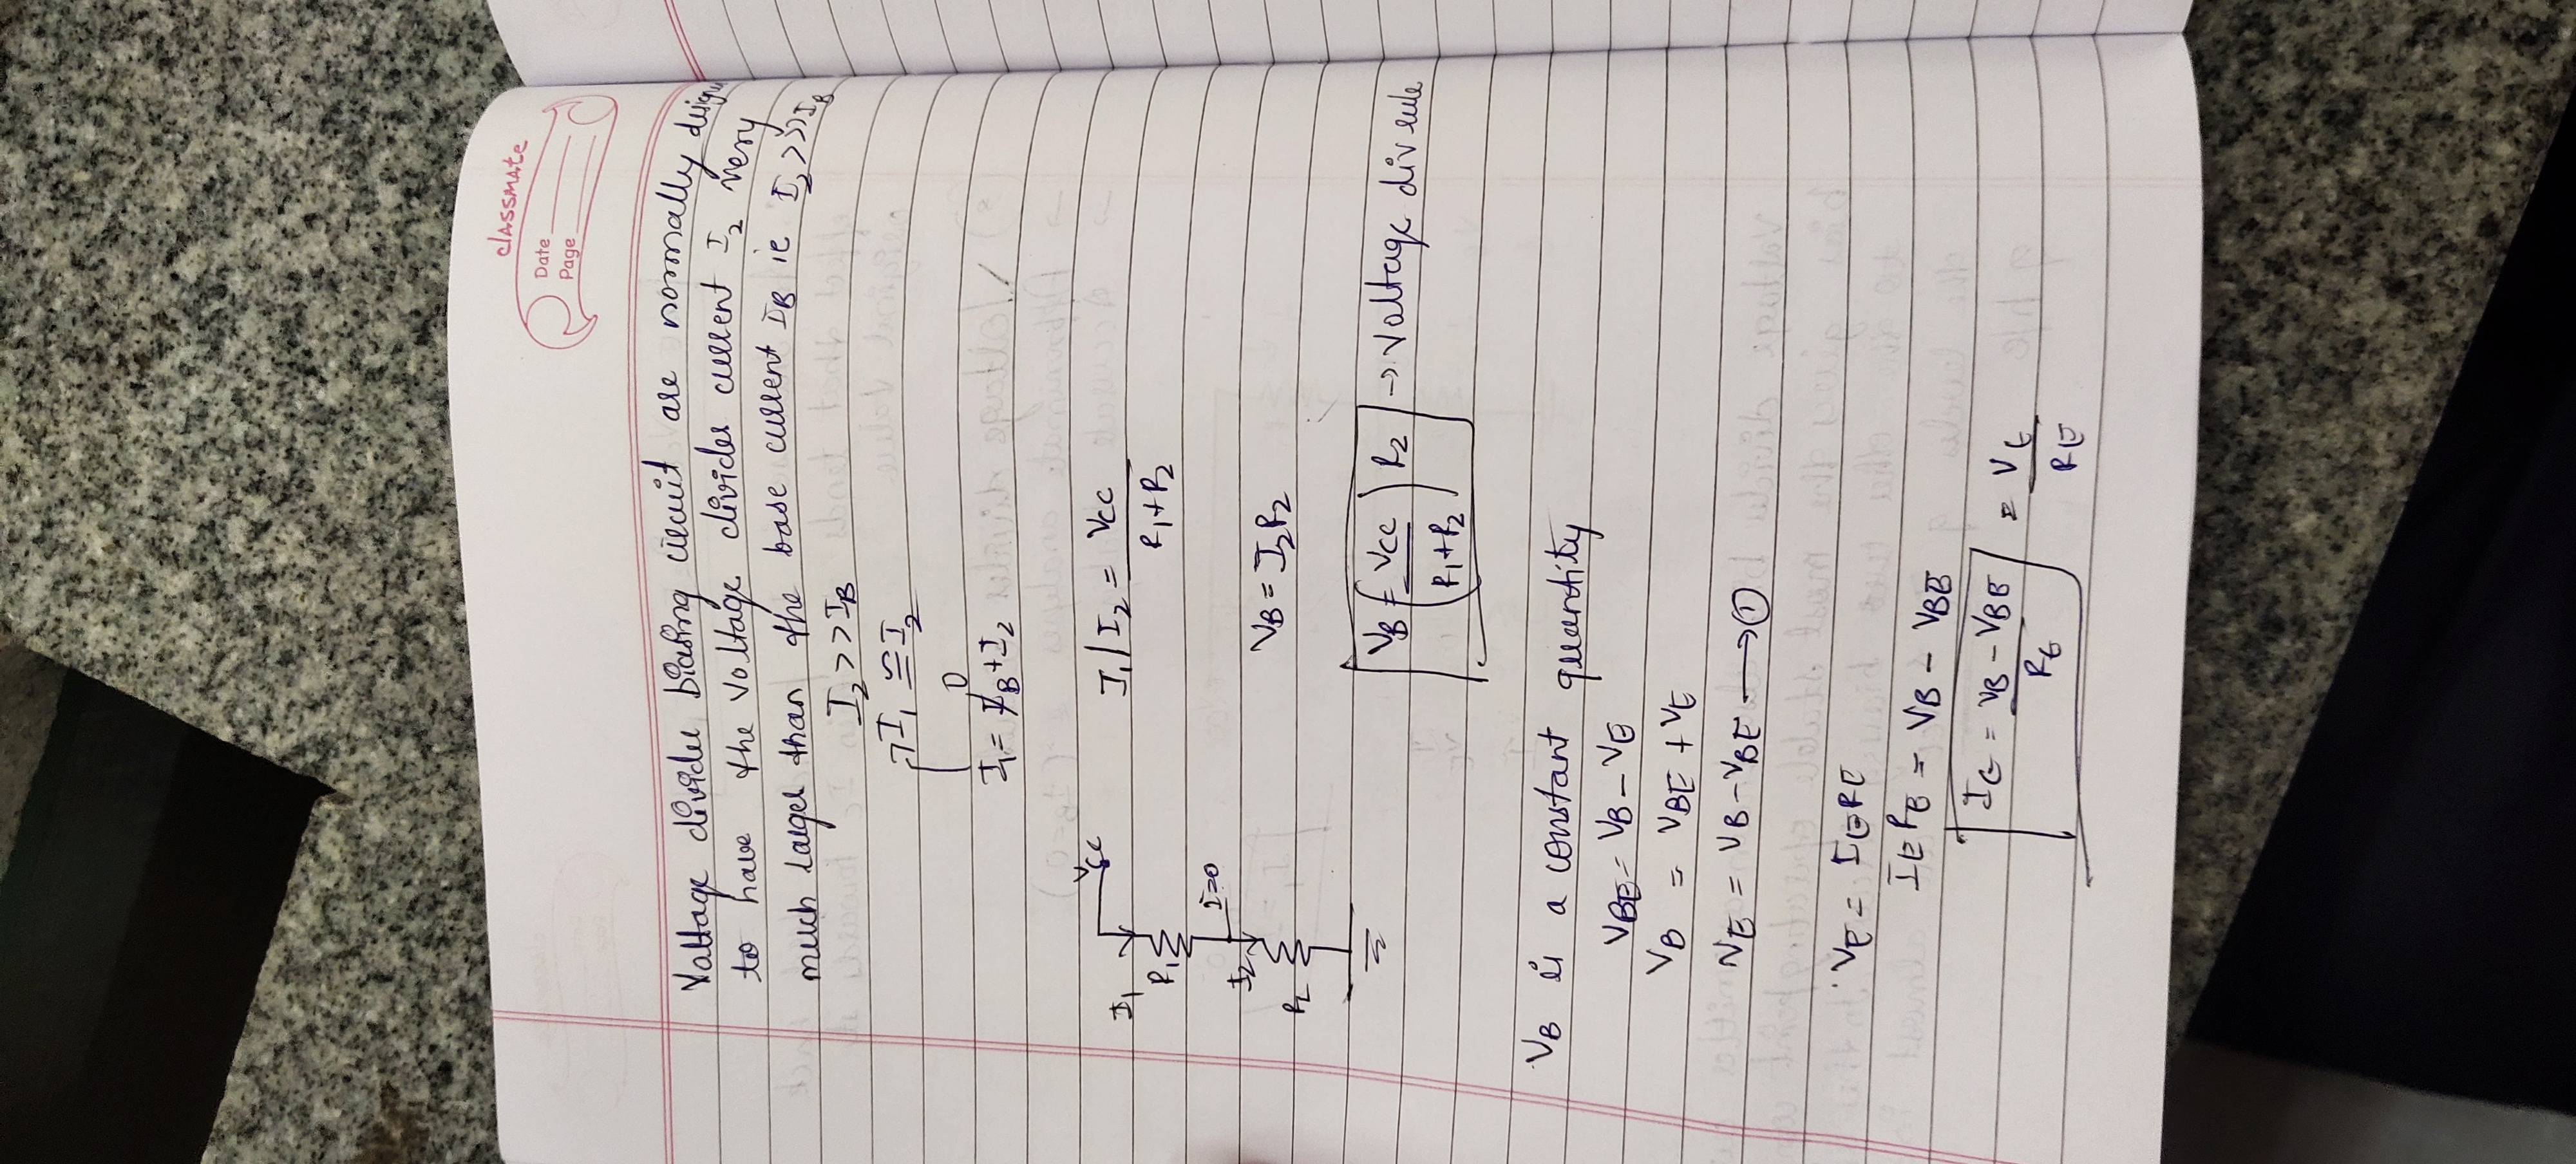 classmate
Date
Page
Voltage divider biasing circuit are normally
to have the voltage divider current I₂ very
much larger than the base current IB ie I₂ >>> IB
I₂ >> IB
I₁ ≅ I₂
0
I₁ = IB + I₂
VCC
I₁
R₁
I=0
I₂
R₂
I₁/I₂ = VCC / R₁+R₂
VB = I₂R₂
VB = (VCC / R₁+R₂) R₂ → Voltage div rule
VB is a constant quantity
VBE = VB - VE
VB = VBE + VE
VE = VB - VBE → ①
VE = IERE
IERE = VB - VBE
IE = VB - VBE / RE = VE / RE